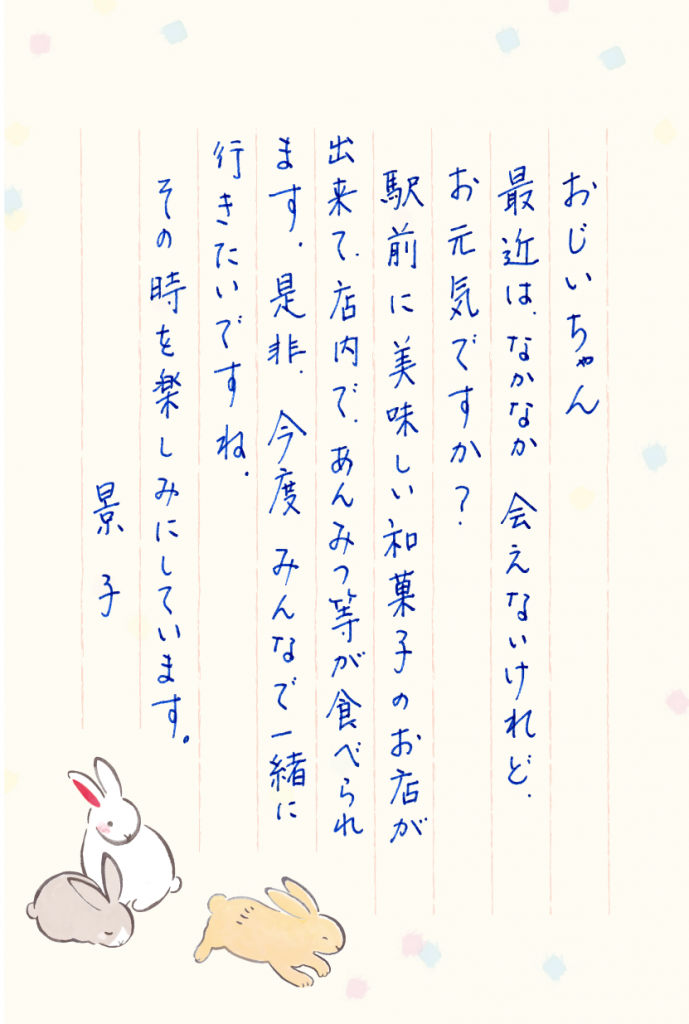 おじいちゃん
最近は、なかなか 会えないけれど、
お元気ですか？
駅前に美味しい和菓子のお店が
出来て、店内で、あんみつ等が食べられ
ます。是非、今度 みんなで一緒に
行きたいですね。
その時を楽しみにしています。
景子